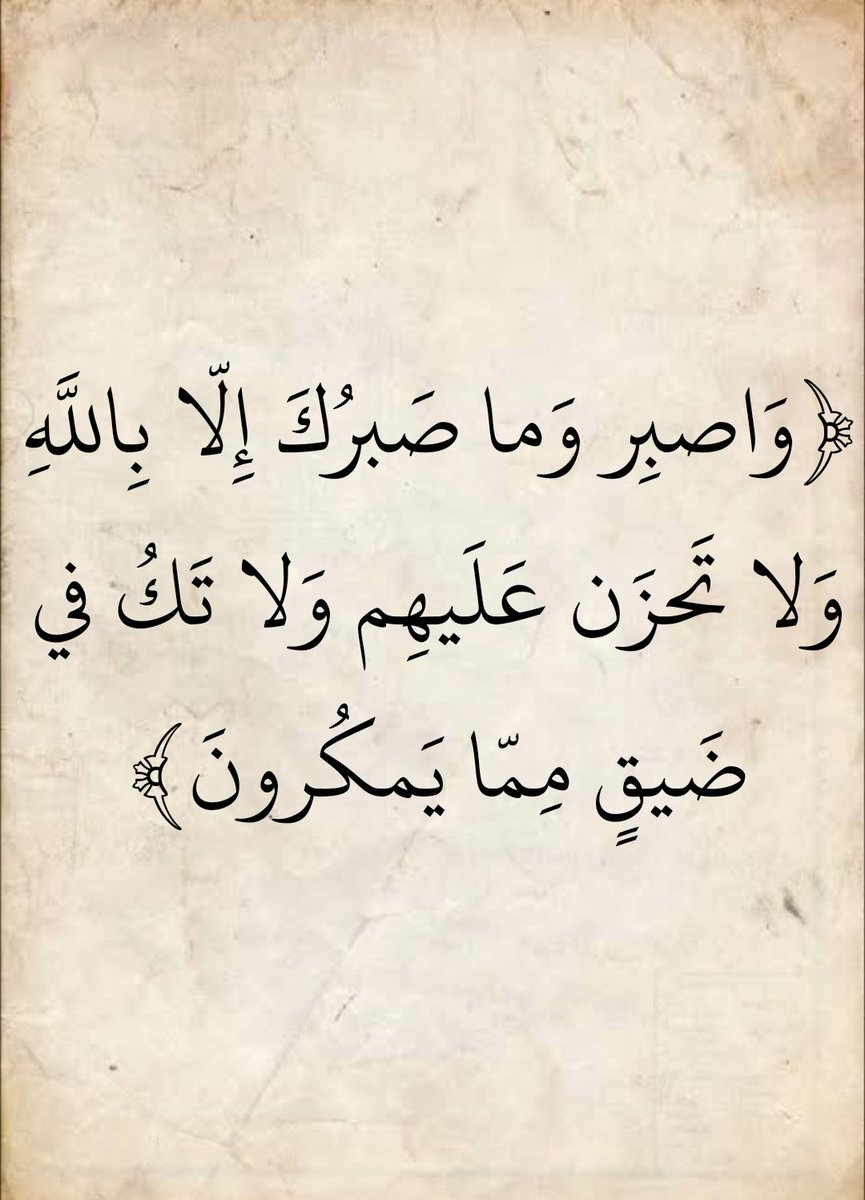 ﴿وَاصبِر وَما صَبرُكَ إِلّا بِاللَّهِ
وَلا تَحزَن عَلَيهِم وَلا تَكُ في
ضَيقٍ مِمّا يَمكُرونَ﴾